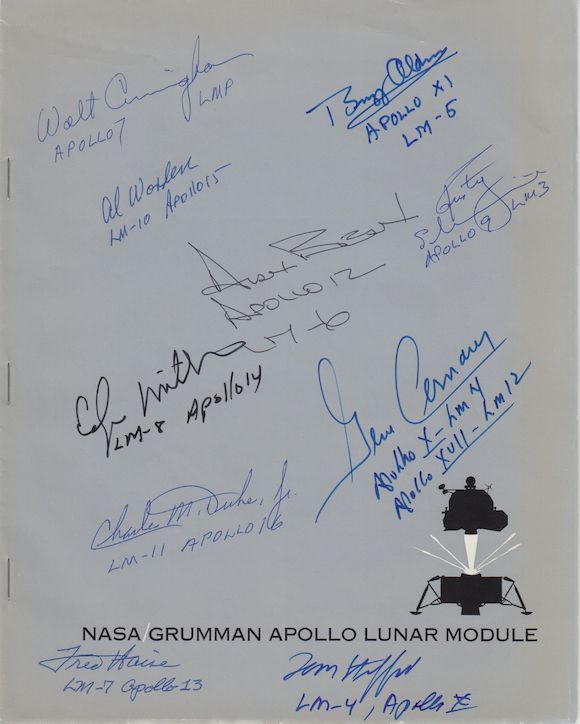 Walt Cunningham
LMP
APOLLO 7
Buzz Aldrin
APOLLO XI
LM-5
Al Worden
LM-10 Apollo 15
Rusty
Schweickart
APOLLO 9 LM3
Alan Bean
APOLLO 12
LM-6
Edgar Mitchell
LM-8 Apollo 14
Gene Cernan
Apollo X-LM4
Apollo XVII-LM12
Charles M. Duke, Jr.
LM-11 APOLLO 16
NASA/GRUMMAN APOLLO LUNAR MODULE
Fred Haise
LM-7 Apollo-13
Tom Stafford
LM-4, Apollo X